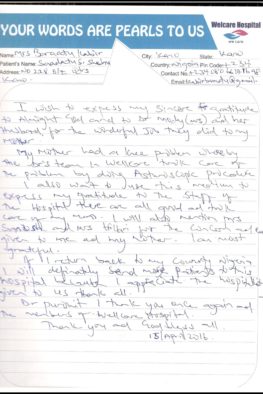 YOUR WORDS ARE PEARLS TO US
Welcare Hospital
WE CARE
Name: Mrs
City: Kano State: Kano
Patient's Name:
Country: Nigeria Pin Code: +234
Address: NO
Contact No.:
Kano.
Email:
I wish to express my sincere gratitude
to Almighty God and to Dr and her
Husband for the wonderful Job They did to my
Mother.
My Mother had a knee problem whereby
the Dr's team in Wellcare took care of
the problem by doing Arthroscopic procedure
I also want to use this medium to
express my gratitude to the staff of
The Hospital there are all good and took
care of my mum. I will also mention mrs
and mrs for the concern and
given to me and my mother. I am most
grateful.
If I return back to my country Nigeria
I will definatly send more patients to this
Hospital because I appreciate the
given to us thank all.
Dr purohit I thank you once again and
the members of Wellcare Hospital.
Thank you and God bless all.
15 April 2016.